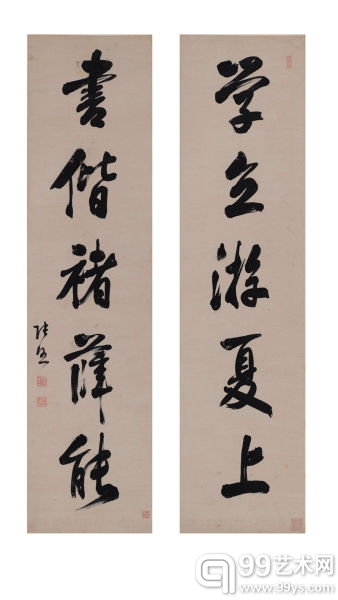 学立游夏上
书偕褚薛能
张照
99艺术网
www.99ys.com